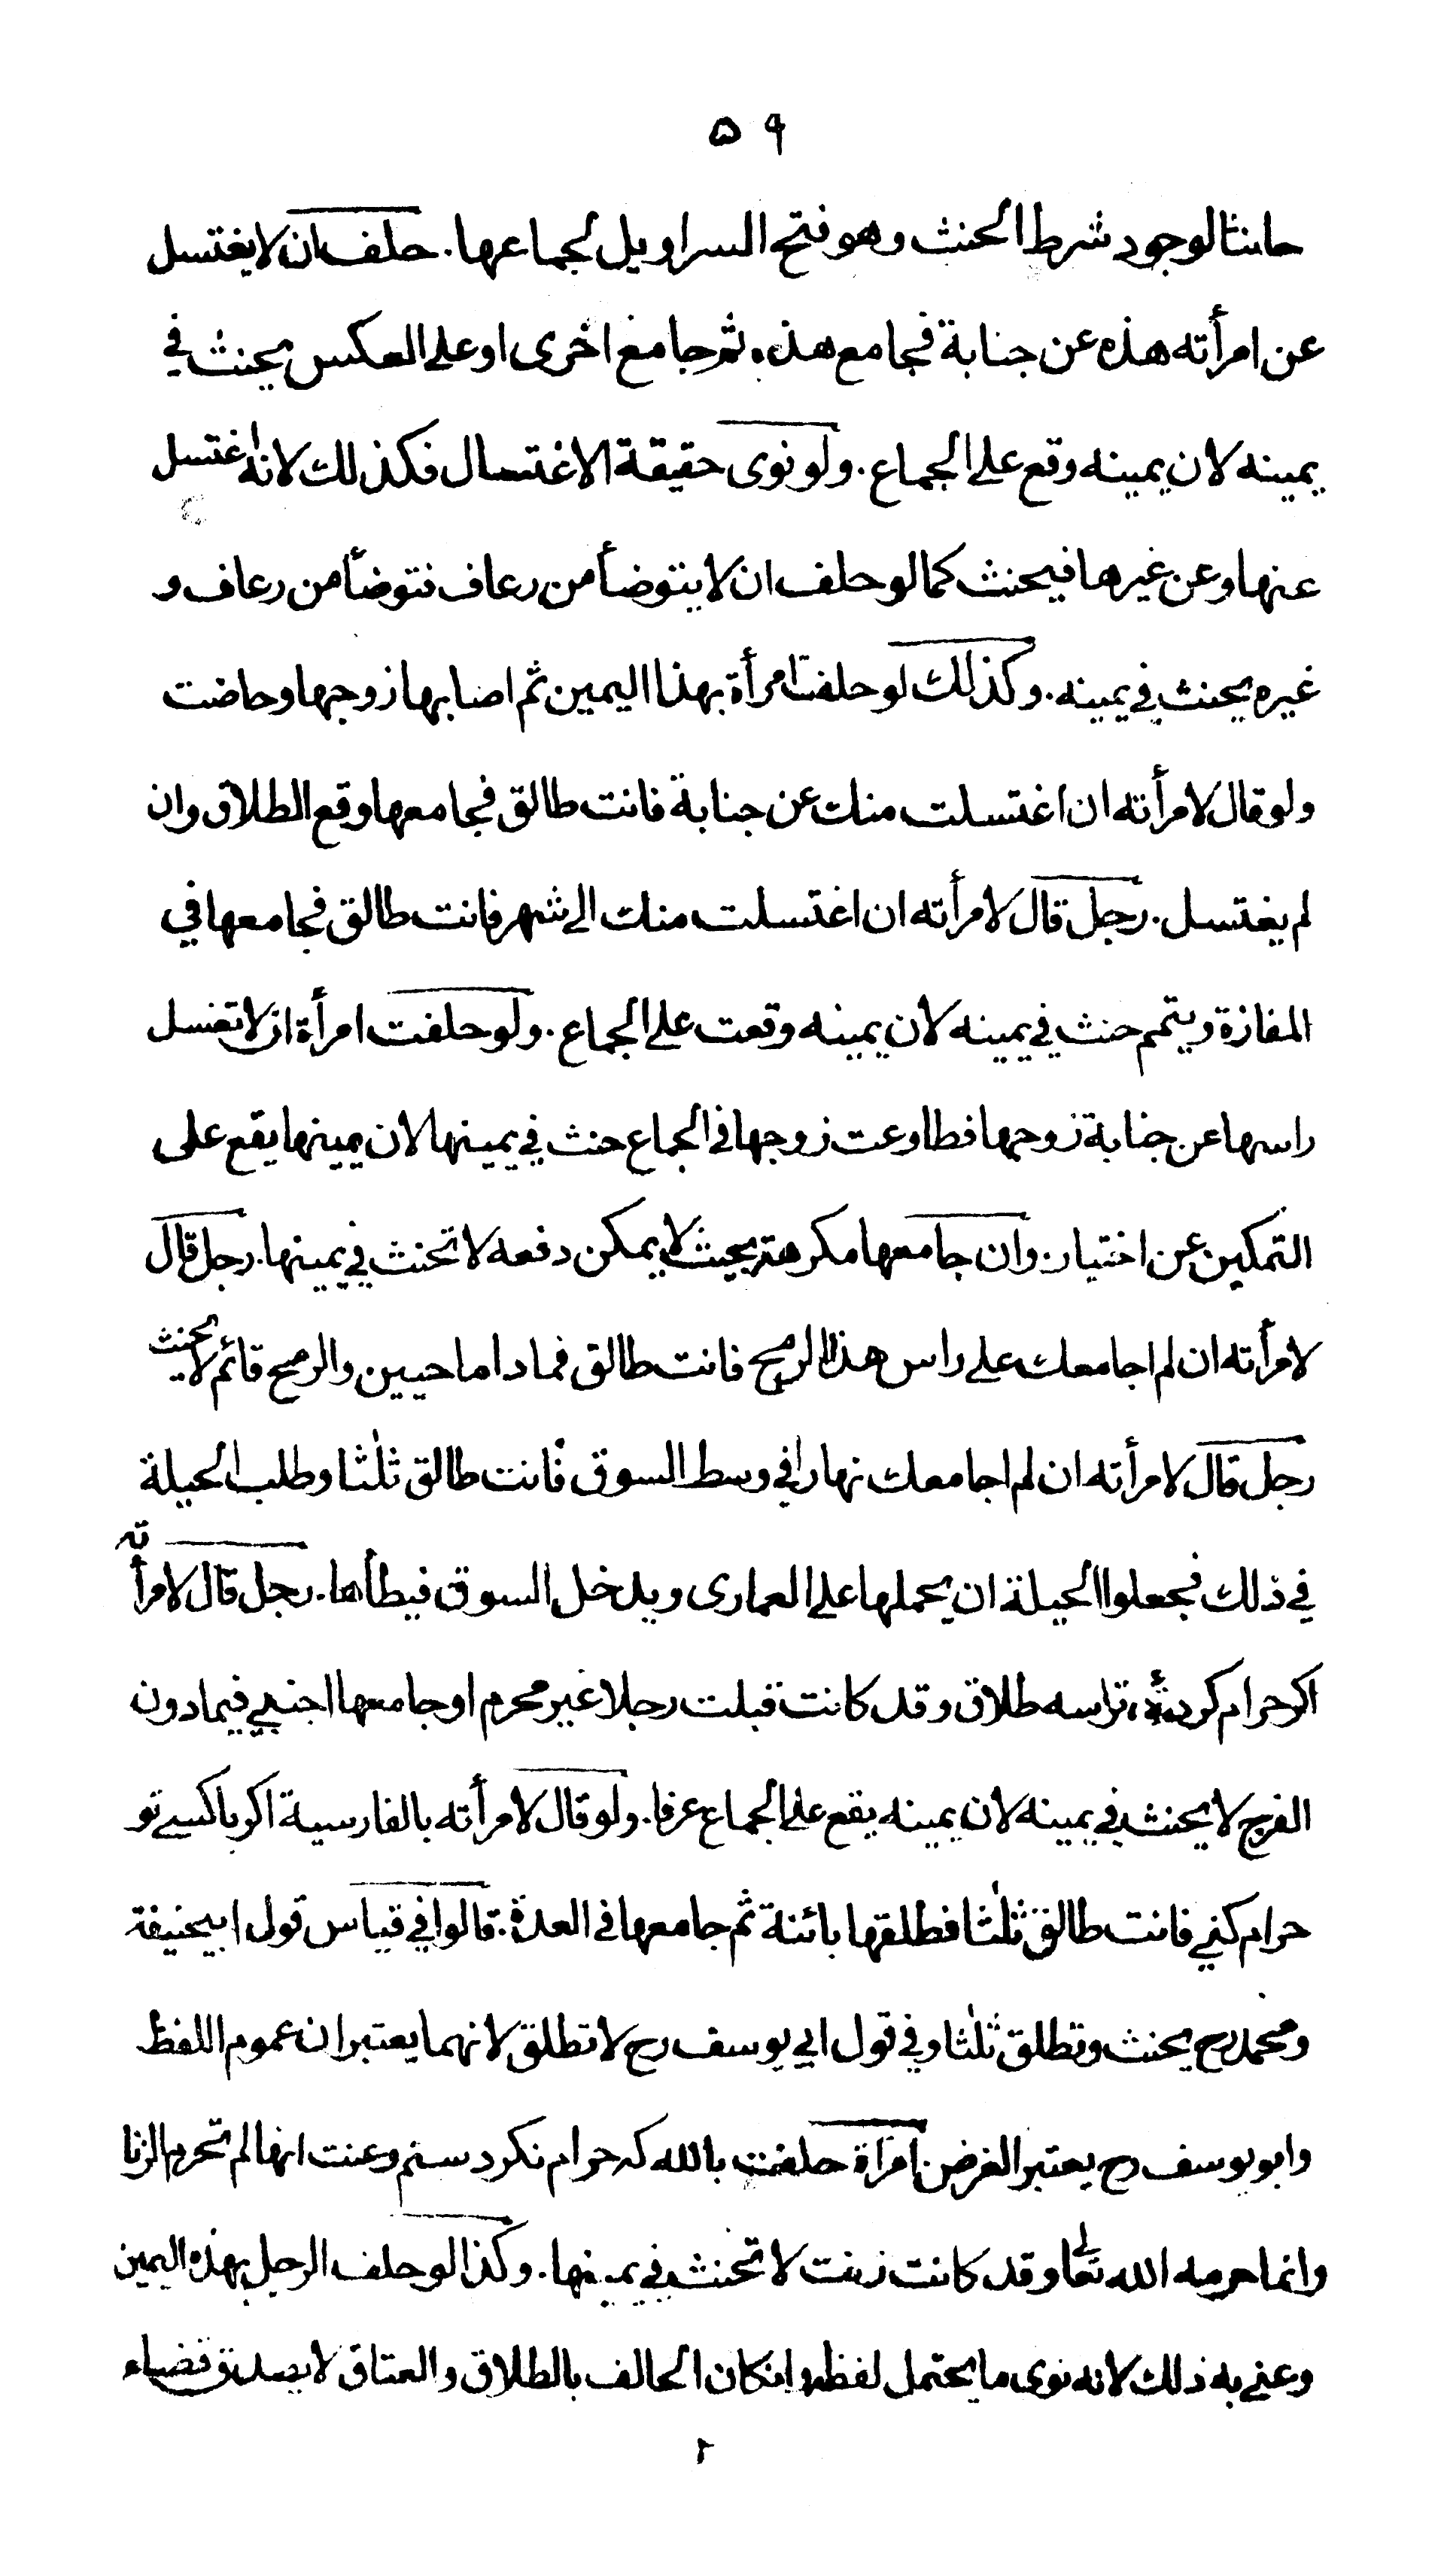 ۵۹
حانثا لوجود شرط الحنث وهو فتح السراويل لجماعها. حلف ان لا يغتسل
عن امرأته هذه عن جنابة فجامع هذه ثم جامع اخرى او على العكس يحنث في
يمينه لان يمينه وقع على الجماع. ولو نوى حقيقة الاغتسال فكذلك لانه اغتسل
عنها وعن غيرها فيحنث كما لو حلف ان لا يتوضأ من رعاف فتوضأ من رعاف و
غيره يحنث في يمينه. وكذلك لو حلفت امرأة بهذا اليمين ثم اصابها زوجها وحاضت
ولو قال لامرأته ان اغتسلت منك عن جنابة فانت طالق فجامعها وقع الطلاق وان
لم يغتسل. رجل قال لامرأته ان اغتسلت منك الى شهر فانت طالق فجامعها في
المفازة ويتمم حنث في يمينه لان يمينه وقعت على الجماع. ولو حلفت امرأة ان لا تغسل
راسها عن جنابة زوجها فطاوعت زوجها في الجماع حنث في يمينها لان يمينها يقع على
التمكين عن اختيار. وان جامعها مكرهة بحيث لا يمكن دفعه لا تحنث في يمينها. رجل قال
لامرأته ان لم اجامعك على راس هذا الرمح فانت طالق فما داما حيين والرمح قائم لا يحنث
رجل قال لامرأته ان لم اجامعك نهارا في وسط السوق فانت طالق ثلٰثا وطلب الحيلة
في ذلك فجعلوا الحيلة ان يحملها على العمارى ويدخل السوق فيطأها. رجل قال لامرأته
اكر حرام كردۀ تراسه طلاق وقد كانت قبلت رجلا غير محرم او جامعها اجنبي فيما دون
الفرج لا يحنث في يمينه لان يمينه يقع على الجماع عرفا. ولو قال لامرأته بالفارسية اكر باكسے تو
حرام كني فانت طالق ثلٰثا فطلقها بائنة ثم جامعها في العدة. قالوا في قياس قول ابيحنيفة
ومحمد رح يحنث وتطلق ثلٰثا وفي قول ابي يوسف رح لا تطلق لانهما يعتبران عموم اللفظ
وابو يوسف رح يعتبر الغرض. امرأة حلفت بالله كه حرام نكردستم وعنت انها لم تحرم الزنا
وانما حرمه الله تعالى وقد كانت زنت لا تحنث في يمينها. وكذا لو حلف الرجل بهذه اليمين
وعنى به ذلك لانه نوى ما يحتمل لفظه وان كان الحالف بالطلاق والعتاق لا يصدق قضاء
۲